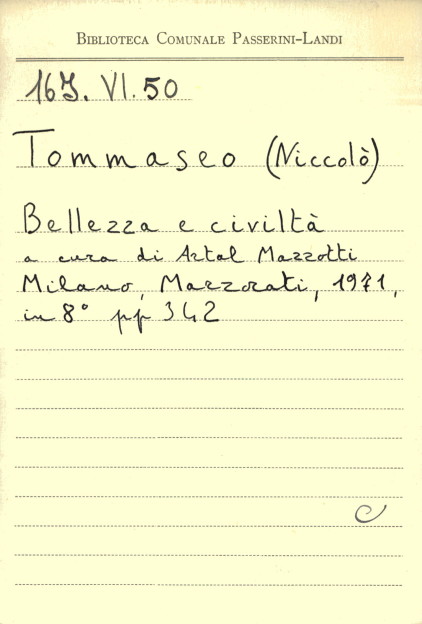 BIBLIOTECA COMUNALE PASSERINI-LANDI
16J. VI. 50
Tommaseo (Niccolò)
Bellezza e civiltà
a cura di Artal Mazzotti
Milano, Marzorati, 1971,
in 8° pp 342
C